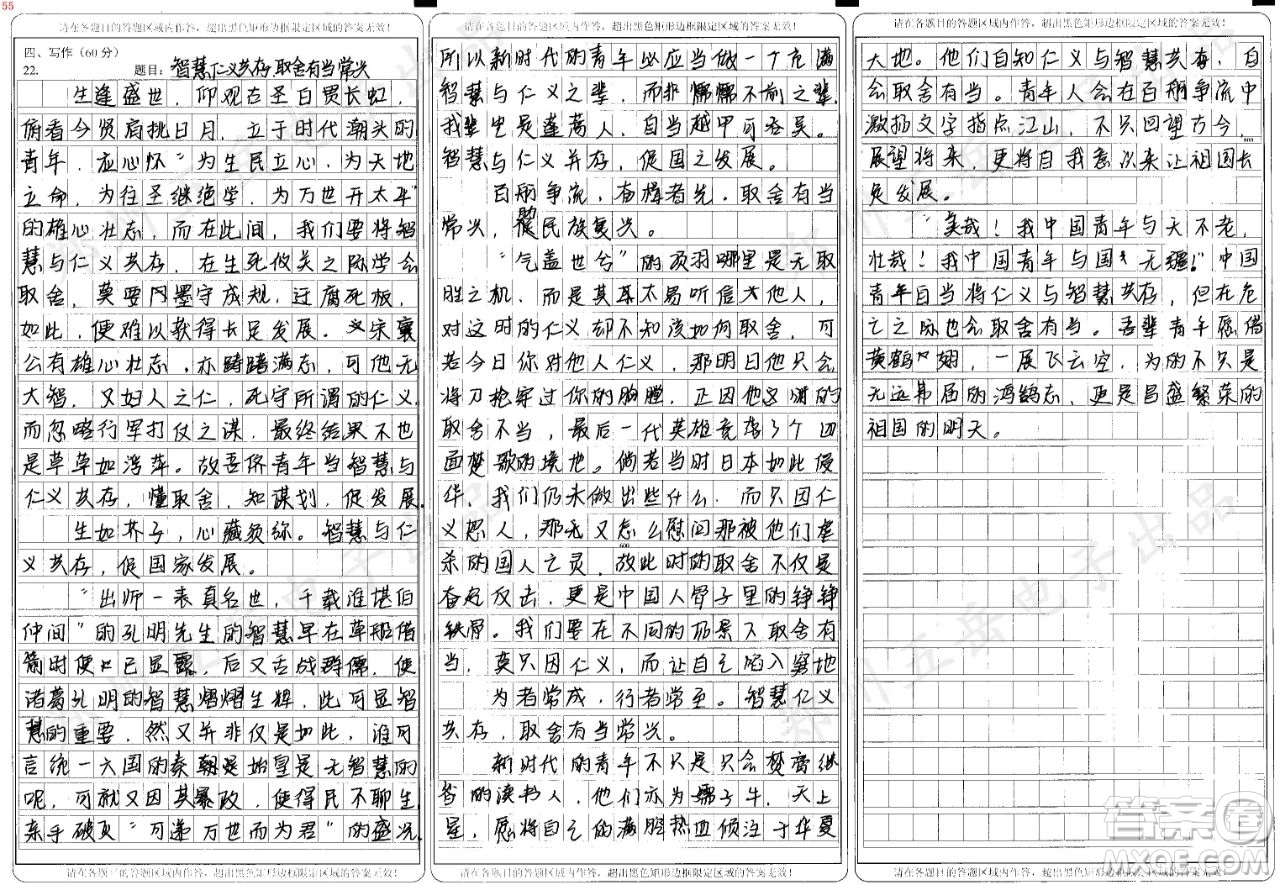 55
请在各题目的答题区域内作答，超出黑色矩形边框限定区域的答案无效！
四、写作（60分）
22. 题目：智慧仁义共存 取舍有当常兴
生逢盛世，仰观古圣白贯长虹，
俯看今贤肩挑日月，立于时代潮头的
青年，应心怀“为生民立心，为天地
立命，为往圣继绝学，为万世开太平”
的雄心壮志，而在此间，我们要将智
慧与仁义共存，在生死攸关之际学会
取舍，莫要墨守成规，迂腐死板，
如此，便难以获得长足发展。宋襄
公有雄心壮志，亦踌躇满志，可他无
大智，又妇人之仁，死守所谓的仁义
而忽略行军打仗之谋，最终结果不也
是草草如浮萍。故吾侪青年当智慧与
仁义共存，懂取舍，知谋划，促发展
生如芥子，心藏须弥。智慧与仁
义共存，促国家发展。
“出师一表真名世，千载谁堪伯
仲间”的孔明先生的智慧早在草船借
箭时便已显露，后又舌战群儒，使
诸葛孔明的智慧熠熠生辉，此可显智
慧的重要，然又并非仅是如此，谁可
言统一六国的秦朝是始皇是无智慧的
呢，可就又因其暴政，使得民不聊生
亲手破灭“可递万世而为君”的盛况
请在各题目的答题区域内作答，超出黑色矩形边框限定区域的答案无效！
请在各题目的答题区域内作答，超出黑色矩形边框限定区域的答案无效！
所以新时代的青年必应当做一个充满
智慧与仁义之辈，而非懦懦不前之辈
我辈岂是蓬蒿人，自当越甲可吞吴。
智慧与仁义并存，促国之发展。
百舸争流，奋楫者先，取舍有当
常兴，民族复兴。
“气盖世兮”的项羽哪里是无取
胜之机，而是其耳太易听信他人，
对这时的仁义却不知该如何取舍，可
若今日你对他人仁义，那明日他只会
将刀枪穿过你的胸膛，正因他这时的
取舍不当，最后一代英雄竟落了个四
面楚歌的境地。倘若当时日本如此侵
华，我们仍未做出些什么，而只因仁
义忍人，那无又怎么慰问那被他们虐
杀的国人之灵，故此时的取舍不仅是
奋起反击，更是中国人骨子里的铮铮
铁骨。我们要在不同的场景下取舍有
当，莫只因仁义，而让自己陷入窘地
为者常成，行者常至。智慧仁义
共存，取舍有当常兴。
新时代的青年不只是只会焚膏继
晷的读书人，他们亦为孺子牛，天上
星，愿将自己的满腔热血倾注于华夏
请在各题目的答题区域内作答，超出黑色矩形边框限定区域的答案无效！
请在各题目的答题区域内作答，超出黑色矩形边框限定区域的答案无效！
大地。他们自知仁义与智慧共存，自
会取舍有当。青年人会在百舸争流中
激扬文字指点江山，不只回望古今，
展望将来，更将自我意以来让祖国长
足发展。
“美哉！我中国青年与天不老，
壮哉！我中国青年与国无疆！”中国
青年自当将仁义与智慧共存，但在危
亡之际也会取舍有当。吾辈青年愿借
黄鹤翅，一展飞云空，为的不只是
无远弗届的鸿鹄志，更是昌盛繁荣的
祖国的明天。
请在各题目的答题区域内作答，超出黑色矩形边框限定区域的答案无效！
答案圈
MXQE.COM